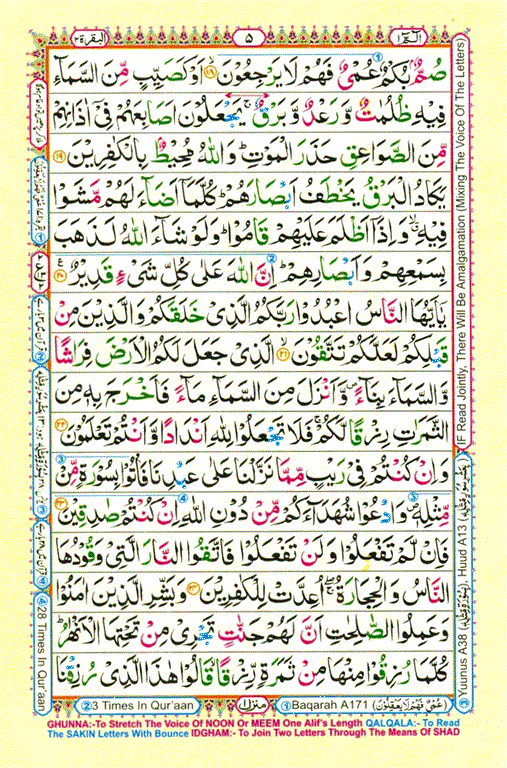 البقرة ٢
٥
الٓمّٓ ١
صُمٌّۢ بُكْمٌ عُمْیٌ فَهُمْ لَا یَرْجِعُوْنَ ﴿۱۸﴾ اَوْ كَصَیِّبٍ مِّنَ السَّمَآءِ
فِیْهِ ظُلُمٰتٌ وَّ رَعْدٌ وَّ بَرْقٌ ۚ یَجْعَلُوْنَ اَصَابِعَهُمْ فِیْۤ اٰذَانِهِمْ
مِّنَ الصَّوَاعِقِ حَذَرَ الْمَوْتِ ؕ وَ اللّٰهُ مُحِیْطٌۢ بِالْكٰفِرِیْنَ ﴿۱۹﴾
یَكَادُ الْبَرْقُ یَخْطَفُ اَبْصَارَهُمْ ؕ كُلَّمَاۤ اَضَآءَ لَهُمْ مَّشَوْا
فِیْهِ ۙ وَ اِذَاۤ اَظْلَمَ عَلَیْهِمْ قَامُوْا ؕ وَ لَوْ شَآءَ اللّٰهُ لَذَهَبَ
بِسَمْعِهِمْ وَ اَبْصَارِهِمْ ؕ اِنَّ اللّٰهَ عَلٰی كُلِّ شَیْءٍ قَدِیْرٌ ﴿۲۰﴾
یٰۤاَیُّهَا النَّاسُ اعْبُدُوْا رَبَّكُمُ الَّذِیْ خَلَقَكُمْ وَ الَّذِیْنَ مِنْ
قَبْلِكُمْ لَعَلَّكُمْ تَتَّقُوْنَ ﴿۲۱﴾ الَّذِیْ جَعَلَ لَكُمُ الْاَرْضَ فِرَاشًا
وَّ السَّمَآءَ بِنَآءً ۪ وَّ اَنْزَلَ مِنَ السَّمَآءِ مَآءً فَاَخْرَجَ بِهٖ مِنَ
الثَّمَرٰتِ رِزْقًا لَّكُمْ ۚ فَلَا تَجْعَلُوْا لِلّٰهِ اَنْدَادًا وَّ اَنْتُمْ تَعْلَمُوْنَ ﴿۲۲﴾
وَ اِنْ كُنْتُمْ فِیْ رَیْبٍ مِّمَّا نَزَّلْنَا عَلٰی عَبْدِنَا فَاْتُوْا بِسُوْرَةٍ مِّنْ
مِّثْلِهٖ ۪ وَ ادْعُوْا شُهَدَآءَكُمْ مِّنْ دُوْنِ اللّٰهِ اِنْ كُنْتُمْ صٰدِقِیْنَ ﴿۲۳﴾
فَاِنْ لَّمْ تَفْعَلُوْا وَ لَنْ تَفْعَلُوْا فَاتَّقُوا النَّارَ الَّتِیْ وَقُوْدُهَا
النَّاسُ وَ الْحِجَارَةُ ۖۚ اُعِدَّتْ لِلْكٰفِرِیْنَ ﴿۲۴﴾ وَ بَشِّرِ الَّذِیْنَ اٰمَنُوْا
وَ عَمِلُوا الصّٰلِحٰتِ اَنَّ لَهُمْ جَنّٰتٍ تَجْرِیْ مِنْ تَحْتِهَا الْاَنْهٰرُ ؕ
كُلَّمَا رُزِقُوْا مِنْهَا مِنْ ثَمَرَةٍ رِّزْقًا ۙ قَالُوْا هٰذَا الَّذِیْ رُزِقْنَا
IF Read Jointly, There Will Be Amalgamation (Mixing The Voice Of The Letters)
Yuunus A38 (بِسُوْرَةٍ مِّثْلِهٖ), Huud A13
28 Times In Qur'aan
② 3 Times In Qur'aan
منزل ١
① Baqarah A171 (عُمْیٌ فَهُمْ لَا یَعْقِلُوْنَ)
GHUNNA:-To Stretch The Voice Of NOON Or MEEM One Alif's Length QALQALA:- To Read
The SAKIN Letters With Bounce IDGHAM:- To Join Two Letters Through The Means Of SHAD